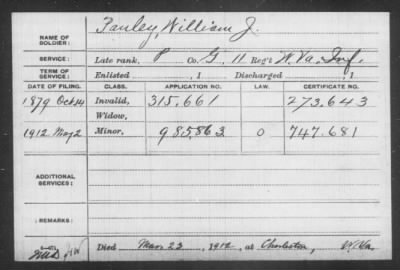 NAME OF SOLDIER: Fauley, William J.
SERVICE: Late rank, P Co. G, 11 Reg't W. Va. Inf.
TERM OF SERVICE: Enlisted , 1 Discharged , 1
DATE OF FILING. CLASS. APPLICATION NO. LAW. CERTIFICATE NO.
1879 Oct 14 Invalid, 315.661 273.643
Widow,
1912 May 2 Minor, 985.863 0 747.681
ADDITIONAL SERVICES:
REMARKS:
Died Mar 22, 1912, at Charleston, W. Va.